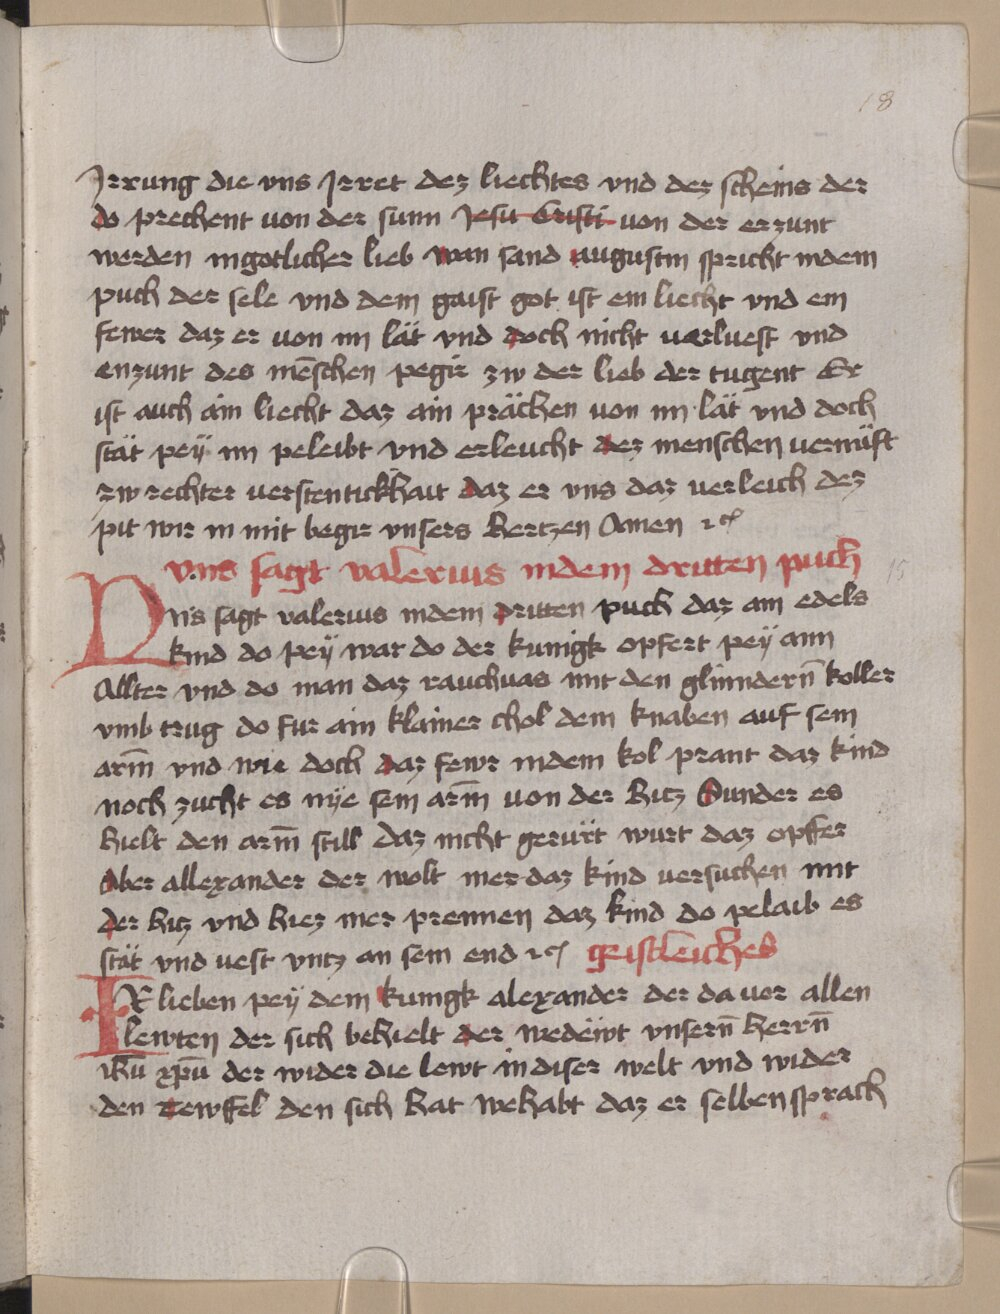 18
Jrrung die vns Jrret dez liechtes vnd dez scheins der
do prechent von der sunn Jesu Cristi von der erzunt
werden in gotlicher lieb wan sand augustin spricht in dem
puch der sele vnd dem gaist got ist ein liecht vnd ein
fewer daz er von im lät vnd doch nicht verluest vnd
enzunt des mēschen pegir zw der lieb der tugent Er
ist auch ain liecht daz ain prächen von im lät vnd doch
stät peÿ im peleibt vnd erleucht dez menschen vernüft
zw rechter verstentickhait daz er vns daz verleich dez
pit wir in mit begir vnsers hertzen Amen ⁊c
vns sagt valerius in dem dritten puch
15
Vns sagt valerius in dem dritten puch daz ain edels
kind do peÿ war do der kunigk opfert peÿ aim
Allter vnd do man daz rauchuas mit den glimdern̄ koller
vmb trug do fur ain klainer chol dem knaben auf sein
arm̄ vnd wie doch daz fewr in dem kol prant daz kind
noch zucht es nye sein arm̄ von der hitz Sunder es
hielt den arm̄ still daz nicht gerürt wurt daz opffer
Aber allexander der wolt mer daz kind versuchen mit
der hitz vnd hiez mer prennen daz kind do pelaib es
stät vnd uest vntz an sein end ⁊c geistleiches
Ir lieben peÿ dem kunigk alexander der da vor allen
lewten der sich behielt der wedëwt vnsern̄ herrn̄
ihū xp̄ū der wider die lewt in diser welt vnd wider
den tewffel den sich hat wehabt daz er selben sprach